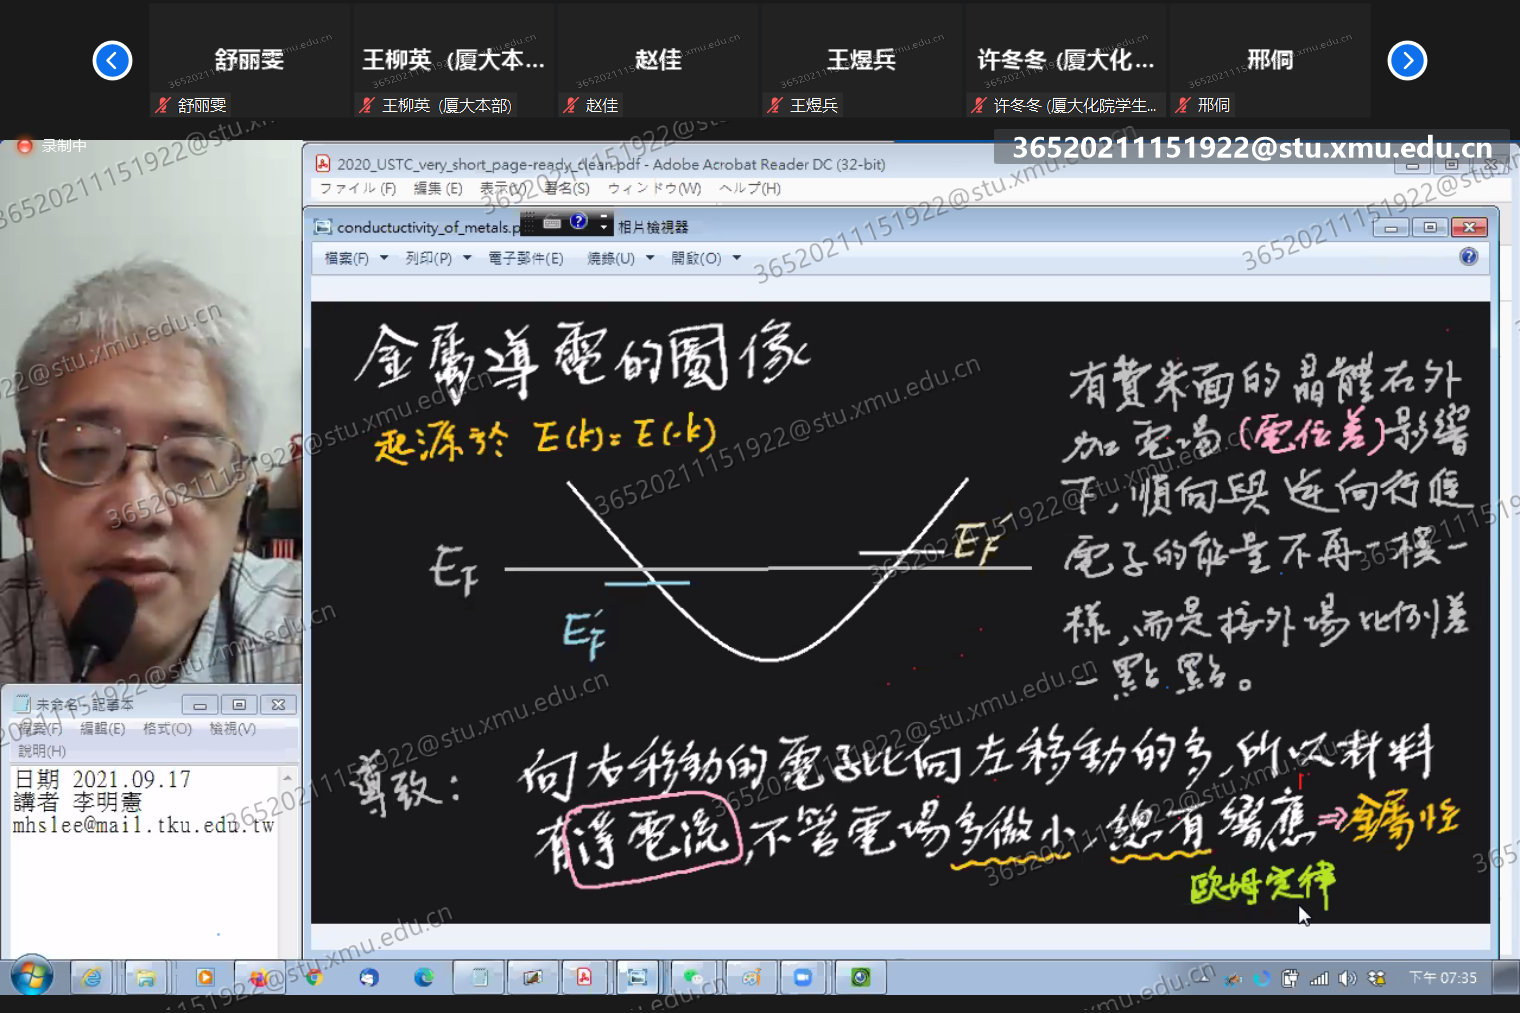 舒丽雯
王柳英（厦大本...
赵佳
王煜兵
许冬冬 (厦大化...
邢侗
舒丽雯
王柳英（厦大本部)
赵佳
王煜兵
许冬冬 (厦大化院学生...
邢侗
录制中
36520211151922@stu.xmu.edu.cn
2020_USTC_very_short_page-ready_clean.pdf - Adobe Acrobat Reader DC (32-bit)
ファイル (F) 編集 (E) 表示(V) 署名(S) ウィンドウ(W) ヘルプ(H)
conductuctivity_of_metals.p
相片檢視器
檔案(F) 列印(P) 電子郵件(E) 燒錄(U) 開啟(O)
金屬導電的圖像
起源於 E(k)=E(-k)
E_F
E_F'
E_F'
有費米面的晶體在外
加電場(電位差)影響
下,順向與逆向行進
電子的能量不再一模一
樣,而是按外場比例差
一點點。
導致:
向右移動的電子比向左移動的多,所以材料
有淨電流,不管電場多微小,總有響應⇒金屬性
欧姆定律
未命名 - 記事本
檔案(F) 編輯(E) 格式(O) 檢視(V)
說明(H)
日期 2021.09.17
講者 李明憲
mhslee@mail.tku.edu.tw
下午 07:35